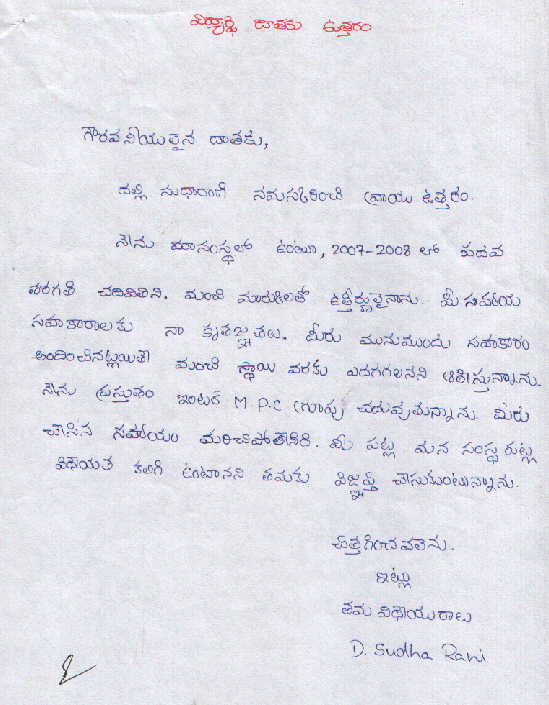 విద్యార్థి దాతకు ఉత్తరం
గౌరవనీయులైన దాతకు,
నల్లి సుధారాణి నమస్కరించి వ్రాయు ఉత్తరం.
నేను మాసంస్థలో ఉంటూ, 2007-2008 లో పదవ
తరగతి చదివితిని. మంచి మార్కులతో ఉత్తీర్ణులైనాను. మీ సహాయ
సహకారాలకు నా కృతజ్ఞతలు. మీరు మునుముందు సహకారం
అందించినట్లయితే మంచి స్థాయి వరకు ఎదగగలనని ఆశిస్తున్నాను.
నేను ప్రస్తుతం ఇంటర్ M.P.C గ్రూపు చదువుతున్నాను. మీరు
చేసిన సహాయం మరిచిపోలేనిది. మీ పట్ల మన సంస్థ పట్ల
విధేయత కలిగి ఉంటానని తమకు విజ్ఞప్తి చేసుకుంటున్నాను.
చిత్తగించవలెను.
ఇట్లు
తమ విధేయురాలు
D. Sudha Rani